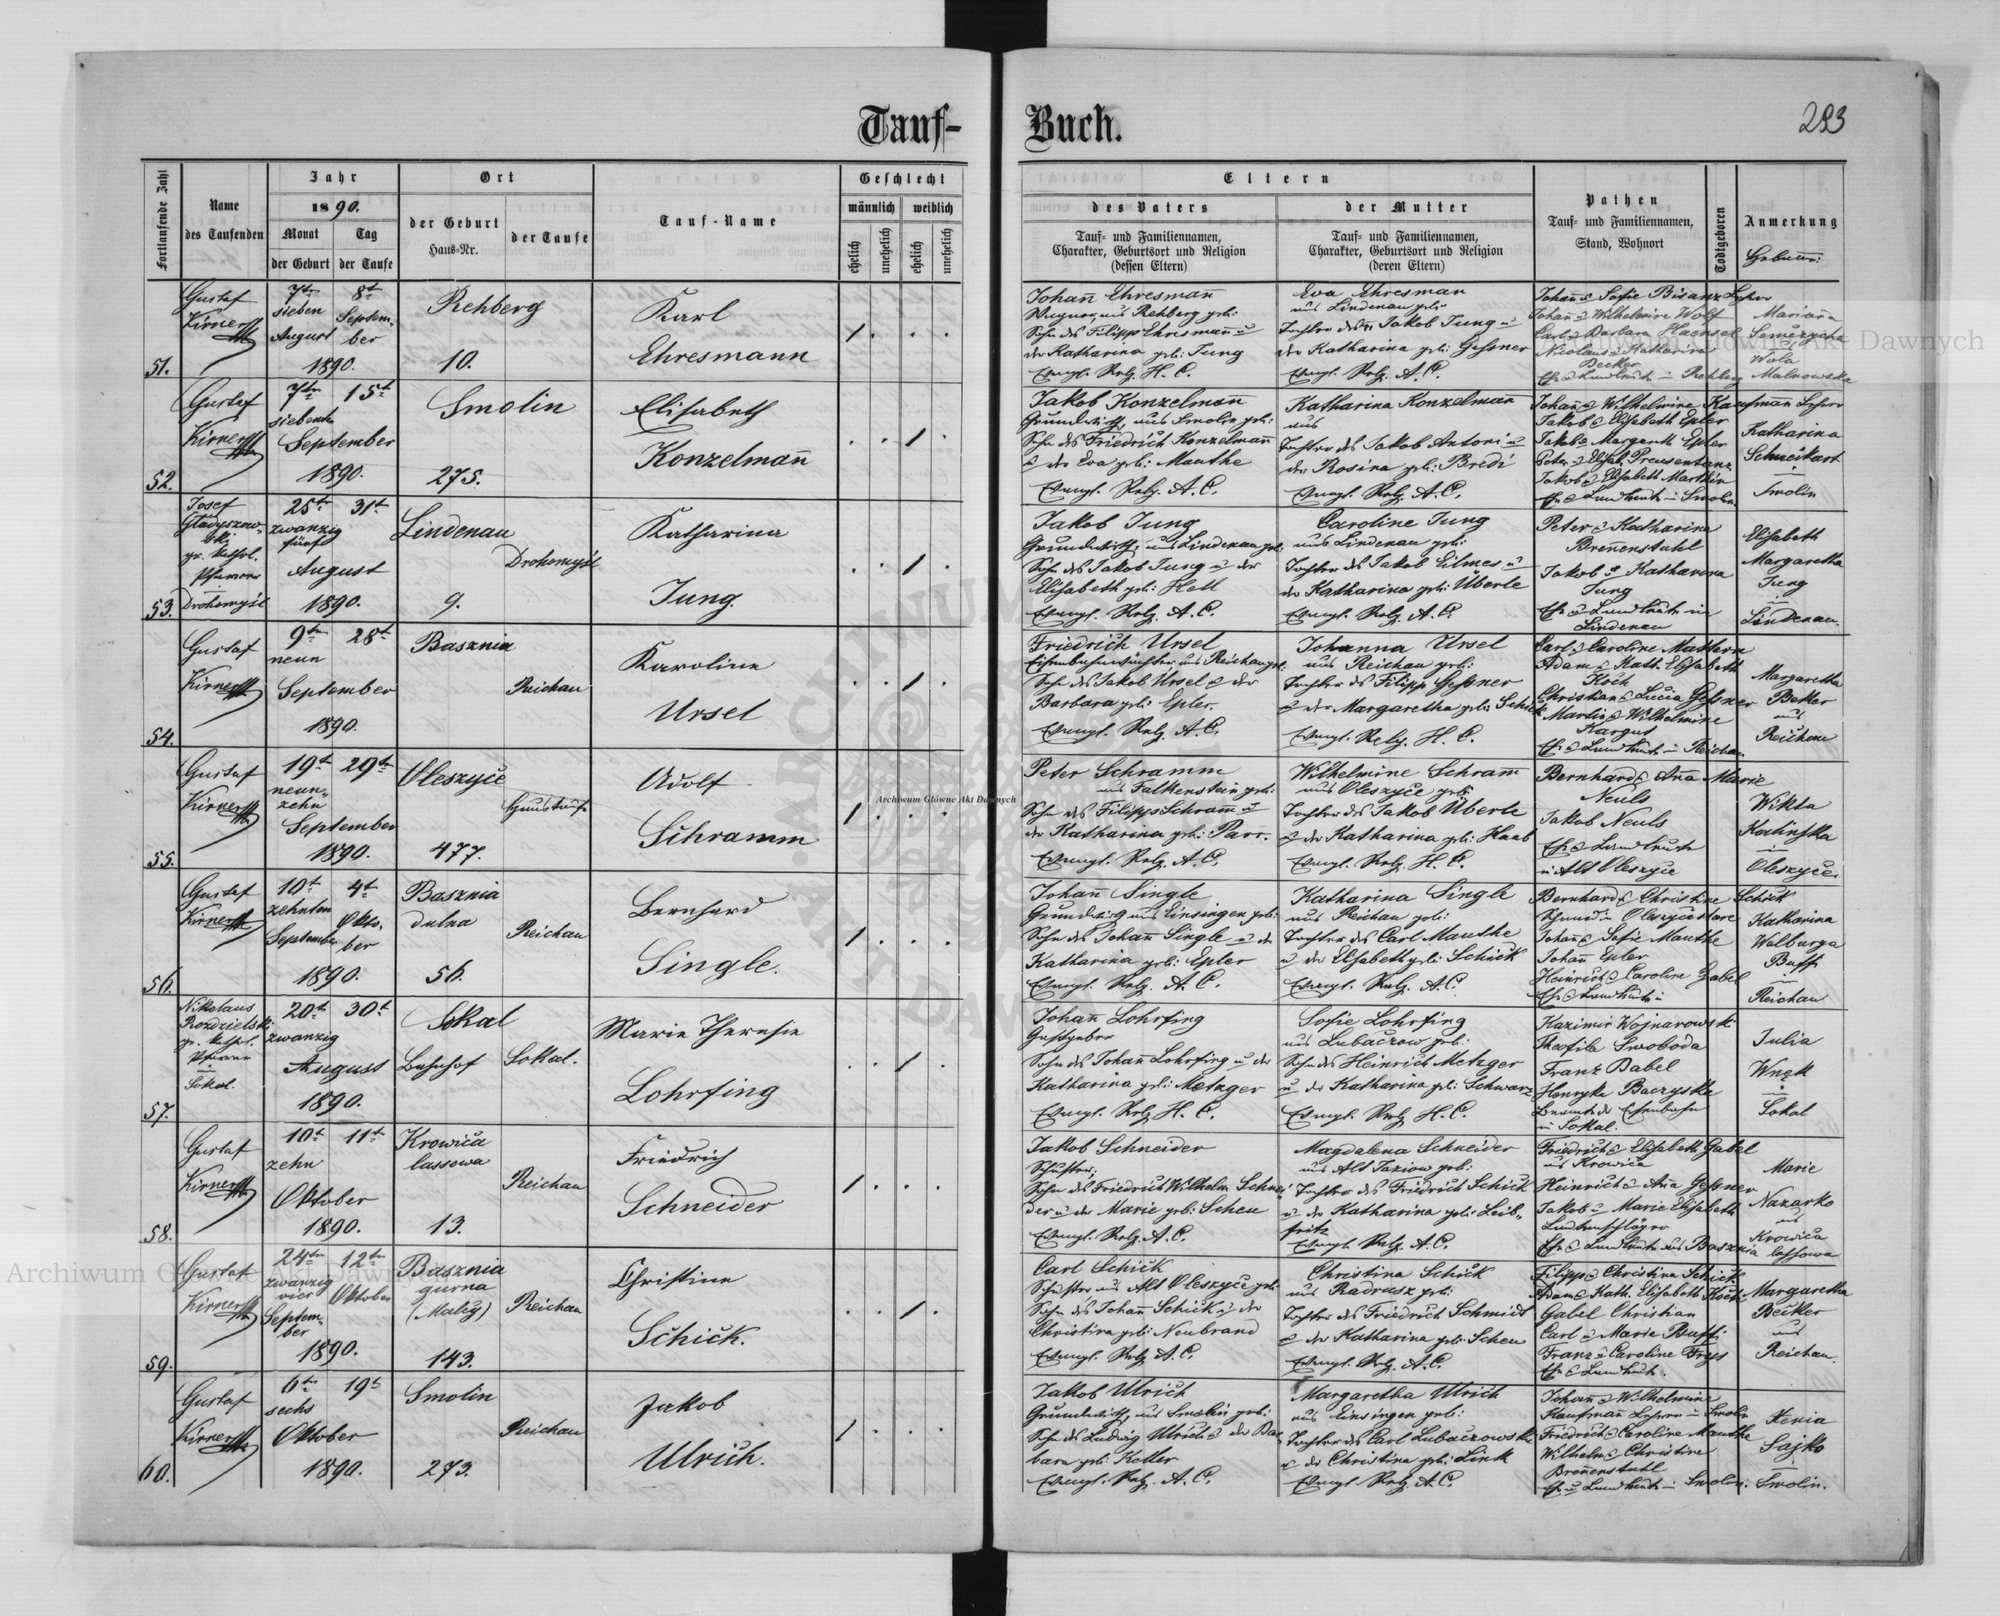 Tauf-
Buch.
283
Fortlaufende Zahl
Name
des Taufenden
Jahr
1890.
Monat
der Geburt
Tag
der Taufe
Ort
der Geburt
Haus-Nr.
der Taufe
Tauf-Name
Geschlecht
männlich
weiblich
ehelich
unehelich
ehelich
unehelich
Eltern
des Vaters
Tauf- und Familiennamen,
Charakter, Geburtsort und Religion
(dessen Eltern)
der Mutter
Tauf- und Familiennamen,
Charakter, Geburtsort und Religion
(deren Eltern)
Pathen
Tauf- und Familiennamen,
Stand, Wohnort
Todtgeboren
Anmerkung
51.
Gustaf
Kirner
7ten
sieben
August
1890.
8t
Septem-
ber
Rehberg
10.
Karl
Ehresmann
Johan̄ Ehresman̄
Wagner, aus Rehberg geb:
Sohn des Filipp Ehresman̄ u
der Katharina geb: Jung
Evngl. Relg. H. C.
Eva Ehresman
aus Lindenau geb:
Tochter des Jakob Jung u
der Katharina geb: Geßner
Evngl. Relg. A. C.
Johan̄ & Sofie Bisanz Lehrer
Johan̄ & Wilhelmine Wolf
Carl & Barbara Haensel
Nicolaus & Katharina
Becker
Ehe & Landleute in Rehberg
Mariana
Wola
Malnowska
52.
Gustaf
Kirner
7ten
siebenten
September
1890.
15t
Smolin
275.
Elisabeth
Konzelman̄
Jakob Konzelman̄
Grundwirth, aus Smolin geb:
Sohn des Friedrich Konzelman̄
u der Eva geb: Mauthe
Evngl. Relg. A. C.
Katharina Konzelman
aus
Tochter des Jakob Antoni u
der Rosina geb: Bredi
Evngl. Relg. A. C.
Johan̄ & Wilhelmine Kaufman̄ Lehrer
Jakob & Elisabeth Epler
Jakob & Margareth Epler
Peter & Elisab. Preusentanz
Jakob & Elisabeth Martkin
Ehe & Landleute in Smolin
Katharina
Schneikart
in
Smolin
53.
Josef
Gladyszow-
ski
gr. kathol.
Pfarrer
Drohomyśl
25t
zwanzig
fünf
August
1890.
31t
Lindenau
9.
Drohomyśl
Katharina
Jung.
Jakob Jung
Grundwirth, aus Lindenau geb:
Sohn des Jakob Jung u der
Elisabeth geb: Hell
Evngl. Relg. A. C.
Caroline Jung
aus Lindenau geb:
Tochter des Jakob Eilmes u
der Katharina geb: Überle
Evngl. Relg. A. C.
Peter & Katharina
Bren̄enstuhl
Jakob & Katharina
Jung
Ehe & Landleute in
Lindenau
Elisabeth
Margaretha
Jung
in
Lindenau.
54.
Gustaf
Kirner
9ten
neun
September
1890.
28t
Basznia
Reichau
Karoline
Ursel
Friedrich Ursel
Eisenbahnwächter aus Reichau geb:
Sohn des Jakob Ursel & der
Barbara geb: Epler.
Evngl. Relg. A. C.
Johanna Ursel
aus Reichau geb:
Tochter des Filipp Geßner
u der Margaretha geb: Schick
Evngl. Relg. H. C.
Carl & Caroline Mathern
Adam & Kath. Elisabeth
Koch
Christian & Lucia Geßner
Martin & Wilhelmine
Kargus
Ehe & Landleute in Reichau
Margaretha
Beker
aus
Reichau
55.
Gustaf
Kirner
19t
neun-
zehn
September
1890.
29ten
Oleszyce
477.
Adolf
Schramm
Peter Schramm
aus Falkenstein geb:
Sohn des Filipp Schram̄ u
der Katharina geb: Parr.
Evngl. Relg. A. C.
Wilhelmine Schram̄
aus Oleszyce geb:
Tochter des Jakob Überle
u der Katharina geb: Haas
Evngl. Relg. H. C.
Bernhard & An̄a Marie
Neuls
Jakob Neuls
Ehe & Landleute
in Alt Oleszyce
Wikta
Kalińska
in
Oleszyce.
56.
Gustaf
Kirner
10t
zehnten
September
1890.
4t
Okto-
ber
Basznia
dolna
56.
Reichau
Bernhard
Single.
Johan̄ Single
Grundwirth aus Einsingen geb:
Sohn des Johan̄ Single u der
Katharina geb: Epler
Evngl. Relg. A. C.
Katharina Single
aus Reichau geb:
Tochter des Carl Mauthe
u der Elisabeth geb: Schick
Evngl. Relg. A. C.
Bernhard & Christine Schick
Schmied in Oleszyce stare
Johan̄ & Sofie Mauthe
Johan̄ Epler
Heinrich & Caroline Gabel
Ehe & Landleute in
Katharina
Walburga
Buffi
in
Reichau
57.
Nikolaus
Rozdzielski
gr. kathol.
Pfarrer
in
Sokal.
20t
zwanzig
August
1890.
30t
Sokal
Bahnhof
Sokal.
Marie Theresie
Lohrfing
Johan̄ Lohrfing
Gastgeber
Sohn des Johan̄ Lohrfing u der
Katharina geb: Metzger
Evngl. Relg. H. C.
Sofie Lohrfing
aus Lubaczow geb:
Sohn des Heinrich Metzger
u der Katharina geb: Schwarz
Evngl. Relg. H. C.
Kazimir Wojnarowski
Theofila Swoboda
Franz Babel
Henryka Baczyska
Beamte der Eisenbahn
in Sokal.
Julia
Wnęk
in
Sokal
58.
Gustaf
Kirner
10t
zehn
Oktober
1890.
11t
Krowica
lassowa
13.
Reichau
Friedrich
Schneider
Jakob Schneider
Schuster.
Sohn des Friedrich Wilhelm Schnei-
der u der Marie geb: Scheu
Evngl. Relg. A. C.
Magdalena Schneider
aus Alt Jaziow geb:
Tochter des Friedrich Schick
u der Katharina geb: Leib-
fritz
Evngl. Relg. A. C.
Friedrich & Elisabeth Gabel
aus Krowica
Heinrich & An̄a Geßner
Jakob u Marie Elisabeth
Ehe & Landleute aus Basznia
Marie
Nazarko
aus
Krowica
lassowa
59.
Gustaf
Kirner
24ten
zwanzig
vier
Septem-
ber
1890.
12ten
Oktober
Basznia
gurna
143.
Reichau
Christine
Schick.
Carl Schick
Schuster aus Alt Oleszyce geb:
Sohn des Johan̄ Schick u der
Christina geb: Neubrand
Evngl. Relg. A. C.
Christina Schick
aus Radrusz geb:
Tochter des Friedrich Schmidt
u der Katharina geb: Scheu
Evngl. Relg. A. C.
Filipp & Christina Schick
Adam & Kath. Elisabeth Koch
Gabel Christian
Carl & Marie Buffi
Franz & Caroline Freys
Ehe & Landleute.
Margaretha
Becker
aus
Reichau.
60.
Gustaf
Kirner
6ten
sechs
Oktober
1890.
19t
Smolin
273.
Reichau
Jakob
Ulrich.
Jakob Ulrich
Grundwirth, aus Smolin geb:
Sohn des Ludwig Ulrich u der Bar-
bara geb: Koller
Evngl. Relg. A. C.
Margaretha Ulrich
aus Einsingen geb:
Tochter des Carl Lubaczowski
u der Christina geb: Link
Evngl. Relg. A. C.
Johan̄ & Wilhelmine
Kaufman̄ Lehrer in Smolin
Friedrich & Caroline Mauthe
Wilhelm & Christine
Bren̄enstuhl
Ehe u Landleute in Smolin.
Xenia
Sajko
in
Smolin.
Archiwum Główne Akt Dawnych
Archiwum Główne Akt Dawnych
Archiwum Główne Akt Dawnych